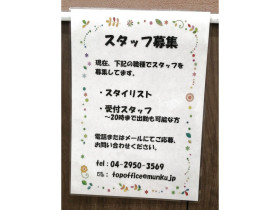 スタッフ募集
現在、下記の職種でスタッフを
募集してます。
・スタイリスト
・受付スタッフ
～20時まで出勤も可能な方
電話またはメールにてご応募、
お問い合わせください。
tel：04-2950-3569
：topoffice@munku.jp